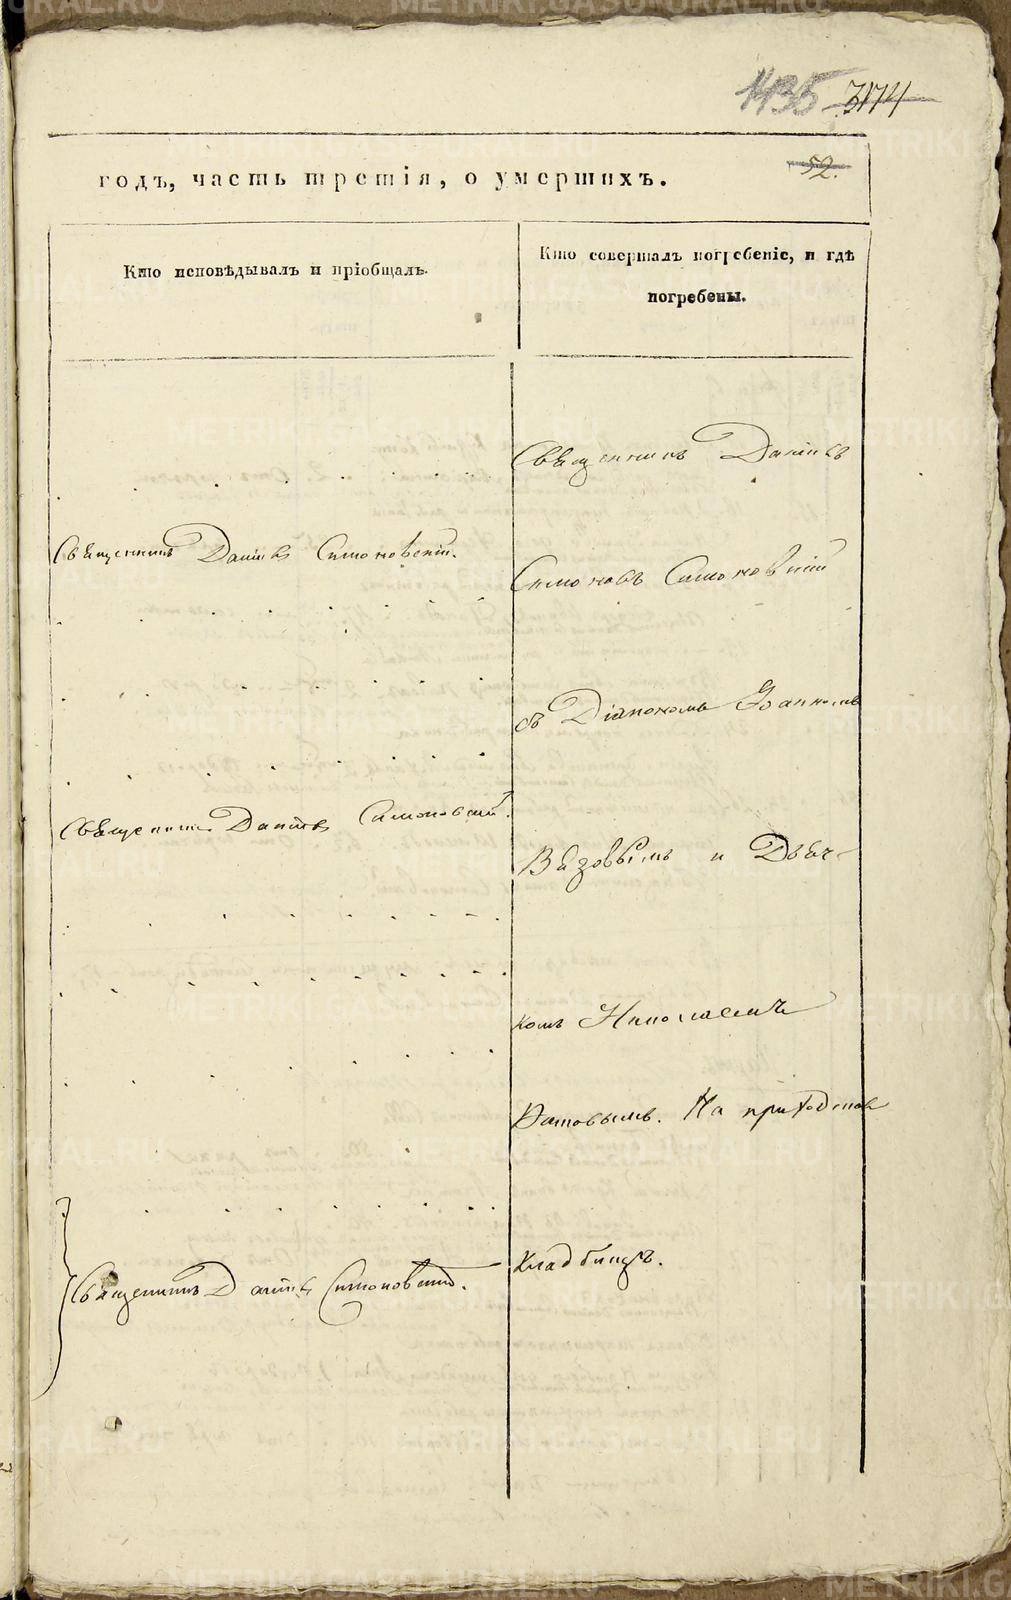 1435 3174
52.
годъ, часть третія, о умершихъ.
Кто исповѣдывалъ и пріобщалъ.
Кто совершалъ погребеніе, и гдѣ
погребены.
Священникъ Даніилъ
Священникъ Даніилъ Симоновскій.
Симоновскій
съ Діакономъ Іоанномъ
Священникъ Даніилъ Симоновскій.
Вязовымъ и Дьяч-
комъ Николаемъ
На приходском
кладбищѣ.
Священникъ Даніилъ Симоновскій.
METRIKI.GASO-URAL.RU